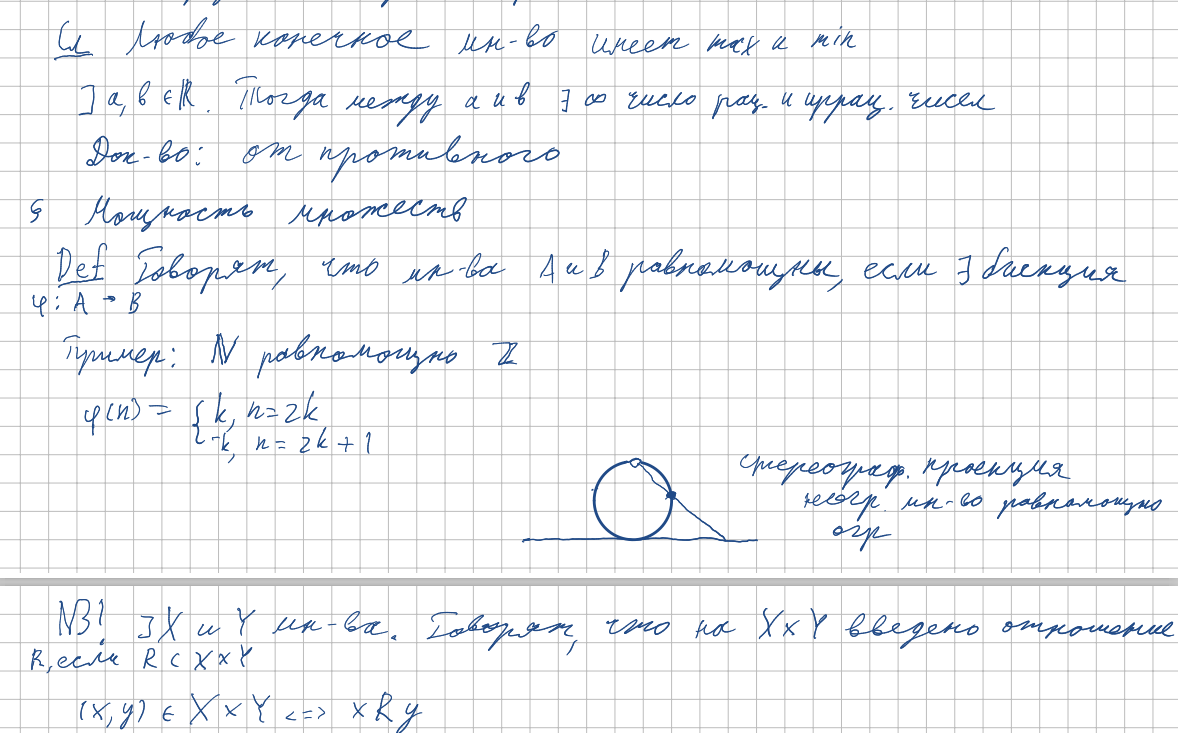 Сл Любое конечное мн-во имеет max и min
] a, b ∈ ℝ. Тогда между a и b ∃ ∞ число рац. и иррац. чисел
Док-во: от противного
§ Мощность множеств
Def Говорят, что мн-ва A и B равномощны, если ∃ биекция
φ: A → B
Пример: ℕ равномощно ℤ
φ(n) = { k, n = 2k
-k, n = 2k + 1
стереограф. проекция
неогр. мн-во равномощно
огр
NB! ] X и Y мн-ва. Говорят, что на X×Y введено отношение
R, если R ⊂ X×Y
(x, y) ∈ X×Y <=> xRy